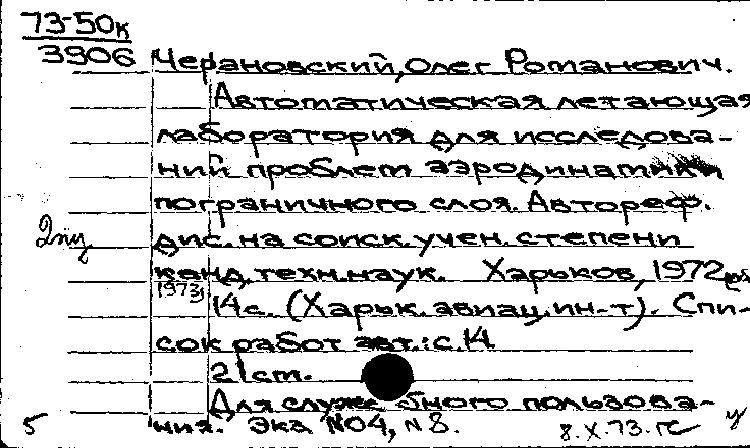 73-50к
3906 Черановский, Олег Романович.
Автоматическая летающая
лаборатория для исследова-
ний проблем аэродинамики
пограничного слоя. Автореф.
дис. на соиск. учен. степени
канд. техн. наук. Харьков, 1972
1973
14 с. (Харьк. авиац. ин-т). Спи-
сок работ авт.: с. 14
21 cm.
Для служебного пользова-
ния. Экз №04, №8.
8.X.73.
5